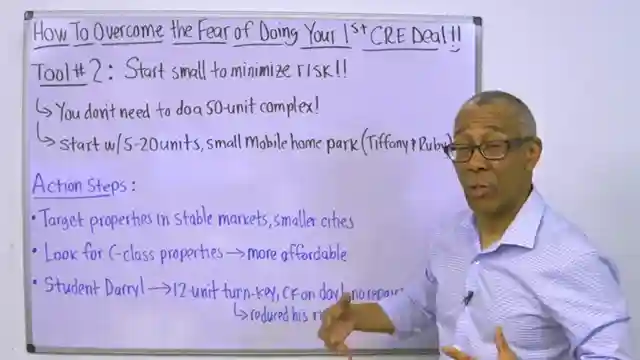 How To Overcome the Fear of Doing Your 1st CRE Deal!!
Tool #2: Start small to minimize risk!!
↳ You don't need to do a 50-unit complex!
↳ start w/ 5-20 units, small mobile home park (Tiffany & Ruby)
Action Steps:
• Target properties in stable markets, smaller cities
• Look for C-class properties → more affordable
• Student Darryl → 12-unit turn-key, CF on day 1, no repair
↳ reduced his